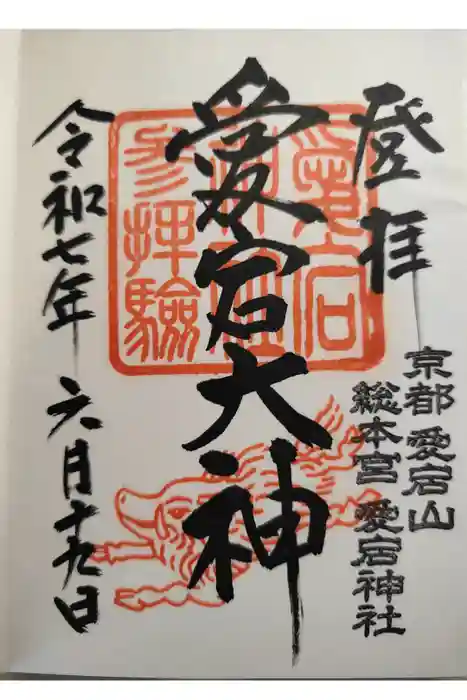 登拝
京都 愛宕山
総本宮 愛宕神社
愛宕大神
愛宕
神社
参拝験
令和七年 六月十九日